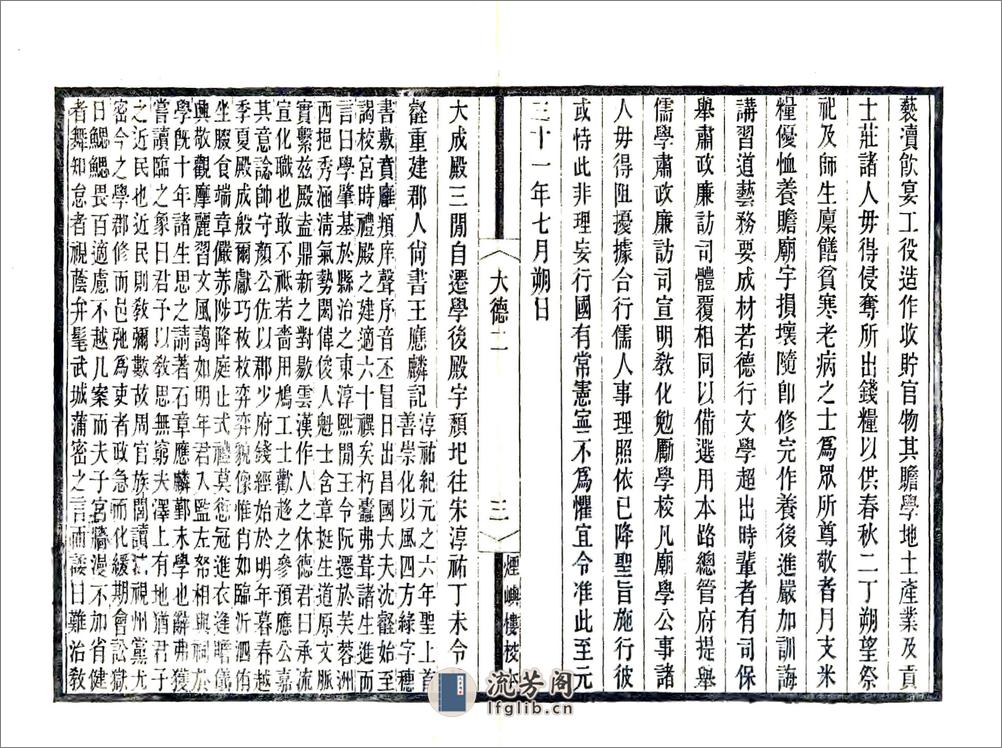 褻瀆飲宴工役造作收貯官物其贍學地土產業及貢
士莊諸人毋得侵奪所出錢糧以供春秋二丁朔望祭
祀及師生廩饍貧寒老病之士爲眾所尊敬者月支米
糧優恤養贍廟宇損壞隨卽修完作養後進嚴加訓誨
講習道藝務要成材若德行文學超出時輩者有司保
舉肅政廉訪司體覆相同以備選用本路總管府提舉
儒學肅政廉訪司宣明敎化勉勵學校凡廟學公事諸
人毋得阻擾據合行儒人事理照依已降聖旨施行彼
或恃此非理妄行國有常憲寧不爲懼宜令准此至元
三十一年七月朔日
大德二
三
煙嶼樓校本
大成殿三閒自遷學後殿宇頹圮往朱淳祐丁未令
龡重建郡人尙書王應麟記
淳祐紀元之六年聖上首
善崇化以風四方綠字穗
書敷賁廱頖庠聲序音丕冒日出昌國大夫沈龡始至
謁校宮時禮殿之建適六十禩矣朽蠹弗葺諸生進而
言曰學肇基於縣治之東淳熙閒王令阮遷於芙蓉洲
西挹秀涵淸氣勢閎偉俊人魁士含章挺生道原文脈
實繫兹殿盍鼎新之對敭雲漢作人之休德君曰承流
宣化職也敢不祗若嗇用鳩工士歡趍之參預應公嘉
其意諗師守顏公佐以郡少府錢經始於明年暮春越
季夏殿成般爾獻巧枚枚弈弈貌像惟肖如臨沂泗侑
坐腏食端章儼若陟降庭止式禮莫愆冠進衣逢瞻儀
興敬觀摩麗習文風藹如明年君入監左帑相與祠於
學旣十年諸生思之請著石章應麟鄞末學也辭弗獲
嘗讀臨之象曰君子以敎思無窮夫澤上有地猶君子
之近民也近民則敎彌數故周官族閭讀法視州黨尤
密今之學郡修而邑弛爲吏者政急而化緩期會訟獄
日鰓鰓畏百適慮不越几案而夫子宮漫不加省健
者舞知怠者視蔭弁髦武城蒲密之言而諉曰難治敎
流芳阁
lfglib.cn